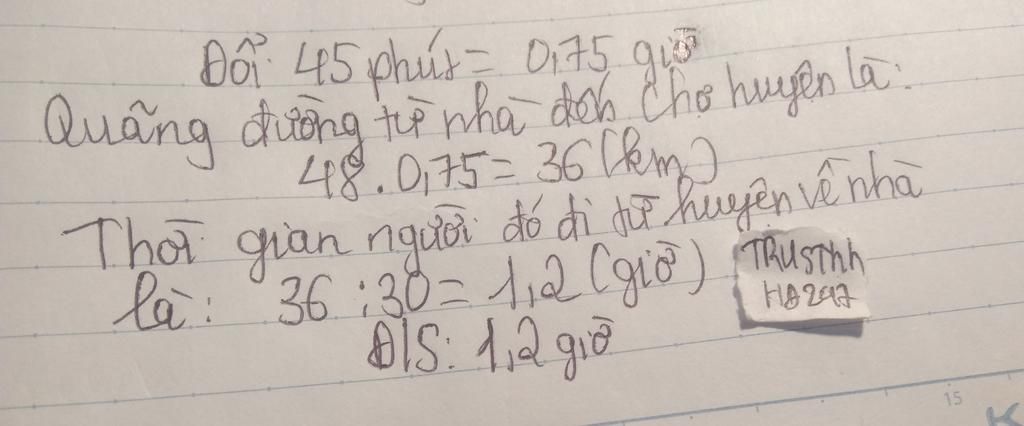 Đổi 45 phút = 0,75 giờ
Quãng đường từ nhà đến chợ huyện là:
48.0,75 = 36 (km)
Thời gian người đó đi từ huyện về nhà
là: 36 : 30 = 1,2 (giờ)
Đ/S: 1,2 giờ
TRUSTHh
HD247
15
K